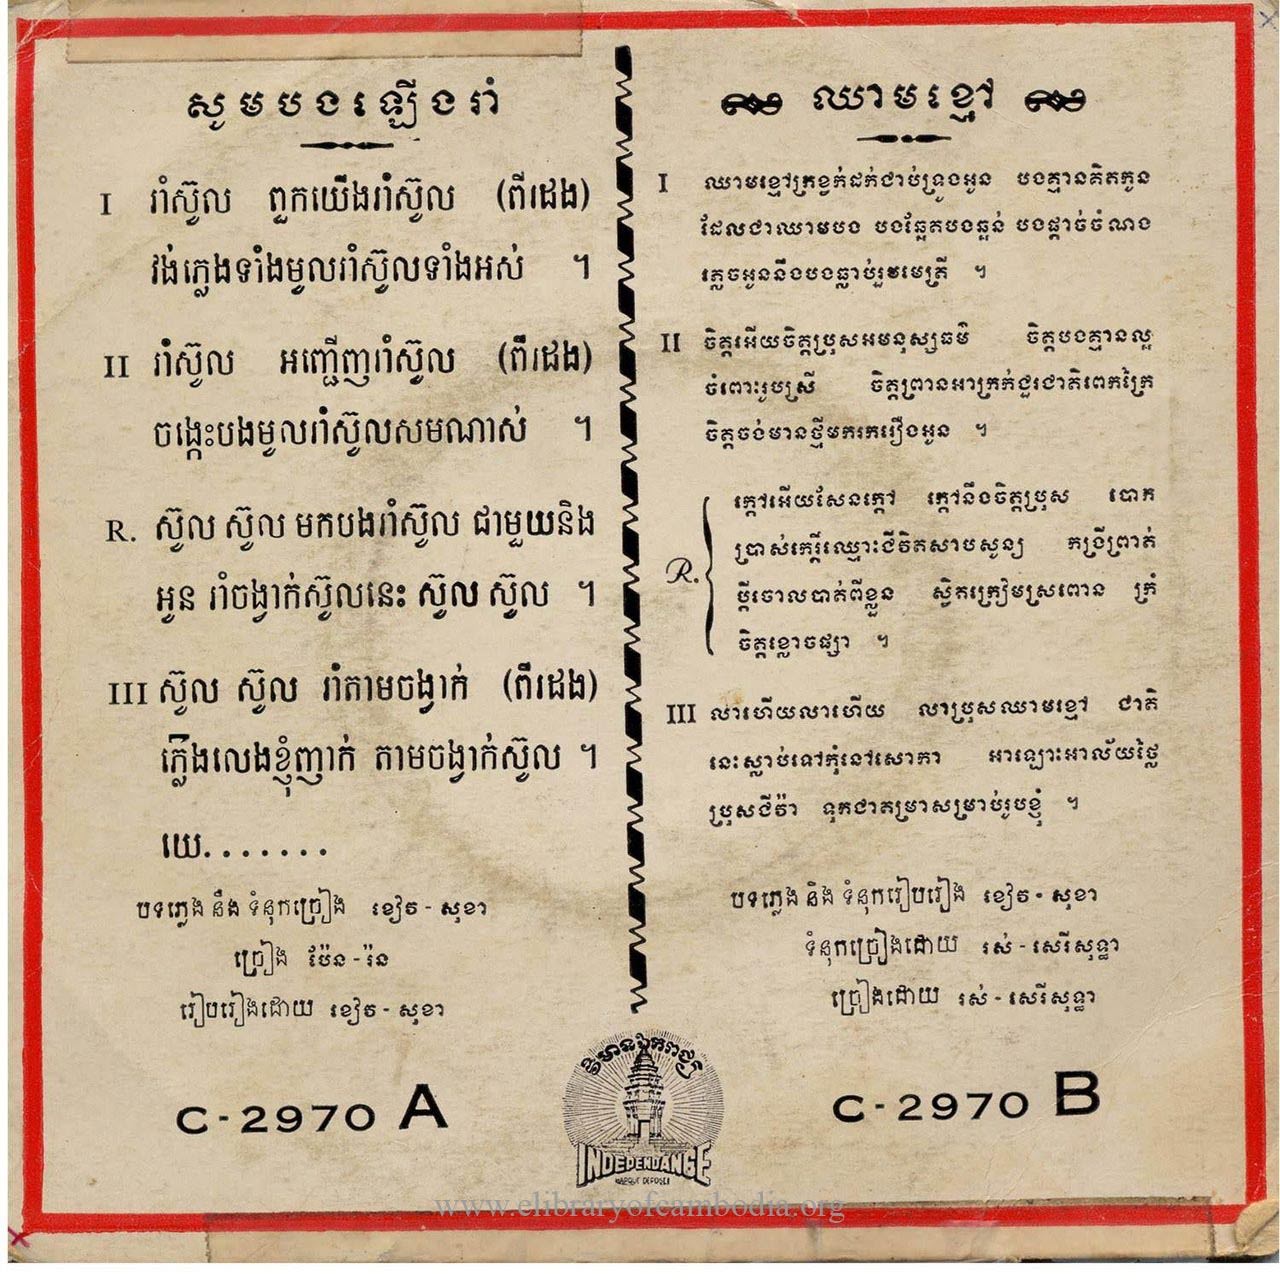 សូមបងឡើងរាំ
I រាំស៊ូល ពួកយើងរាំស៊ូល (ពីរដង)
វង់ភ្លេងទាំងមូលរាំស៊ូលទាំងអស់ ។
II រាំស៊ូល អញ្ជើញរាំស៊ូល (ពីរដង)
ចង្កេះបងមូលរាំស៊ូលសមណាស់ ។
R. ស៊ូល ស៊ូល មកបងរាំស៊ូល ជាមួយនិង
អូន រាំចង្វាក់ស៊ូលនេះ ស៊ូល ស៊ូល ។
III ស៊ូល ស៊ូល រាំតាមចង្វាក់ (ពីរដង)
ភ្លើងលេងខ្ញុំញាក់ តាមចង្វាក់ស៊ូល ។
យេ.......
បទភ្លេង និង ទំនុកច្រៀង ខៀវ - សុខា
ច្រៀង ប៉ែន - រ៉ន
រៀបរៀងដោយ ខៀវ - សុខា
C-2970 A
ឈាមខ្មៅ
I ឈាមខ្មៅក្រខ្វក់ដក់ជាប់ទ្រូងអូន បងគ្មានគិតកូន
ដែលជាឈាមបង បងឆ្អែតបងឆ្អន់ បងផ្តាច់ចំណង
ភ្លេចអូននឹងបងធ្លាប់រួមមេត្រី ។
II ចិត្តអើយចិត្តប្រុសអមនុស្សធម៌ ចិត្តបងគ្មានល្អ
ចំពោះរូបស្រី ចិត្តព្រានអាក្រក់ជួរជាតិពេកក្រៃ
ចិត្តចង់មានថ្មីមករករឿងអូន ។
R. ក្តៅអើយសែនក្តៅ ក្តៅនឹងចិត្តប្រុស បោក
ប្រាស់កេរ្តិ៍ឈ្មោះជីវិតសាបសូន្យ កង្រីព្រាត់
ប្តីចោលបាត់ពីខ្លួន ស្វិតក្រៀមស្រពោន ក្រំ
ចិត្តខ្លោចផ្សា ។
III លាហើយលាហើយ លាប្រុសឈាមខ្មៅ ជាតិ
នេះស្លាប់ទៅកុំនៅសោកា អាឡោះអាល័យថ្លៃ
ប្រុសជីវ៉ា ទុកជាតម្រាសម្រាប់រូបខ្ញុំ ។
បទភ្លេង និង ទំនុករៀបរៀង ខៀវ - សុខា
ទំនុកច្រៀងដោយ រស់ - សេរីសុទ្ធា
ច្រៀងដោយ រស់ - សេរីសុទ្ធា
C-2970 B
វិមានឯករាជ្យ
INDEPENDANCE
MARQUE DEPOSEE
www.elibraryofcambodia.org